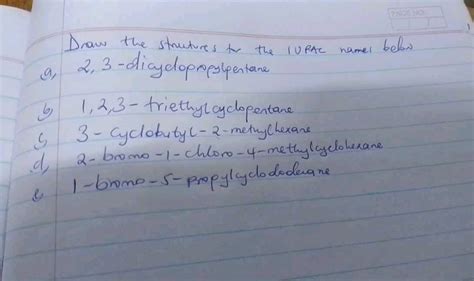 Draw the structures for the IUPAC names below
a, 2,3-dicyclopropylpentane
b, 1,2,3-triethylcyclopentane
c, 3-cyclobutyl-2-methylhexane
d, 2-bromo-1-chloro-4-methylcyclohexane
e, 1-bromo-5-propylcyclododecane